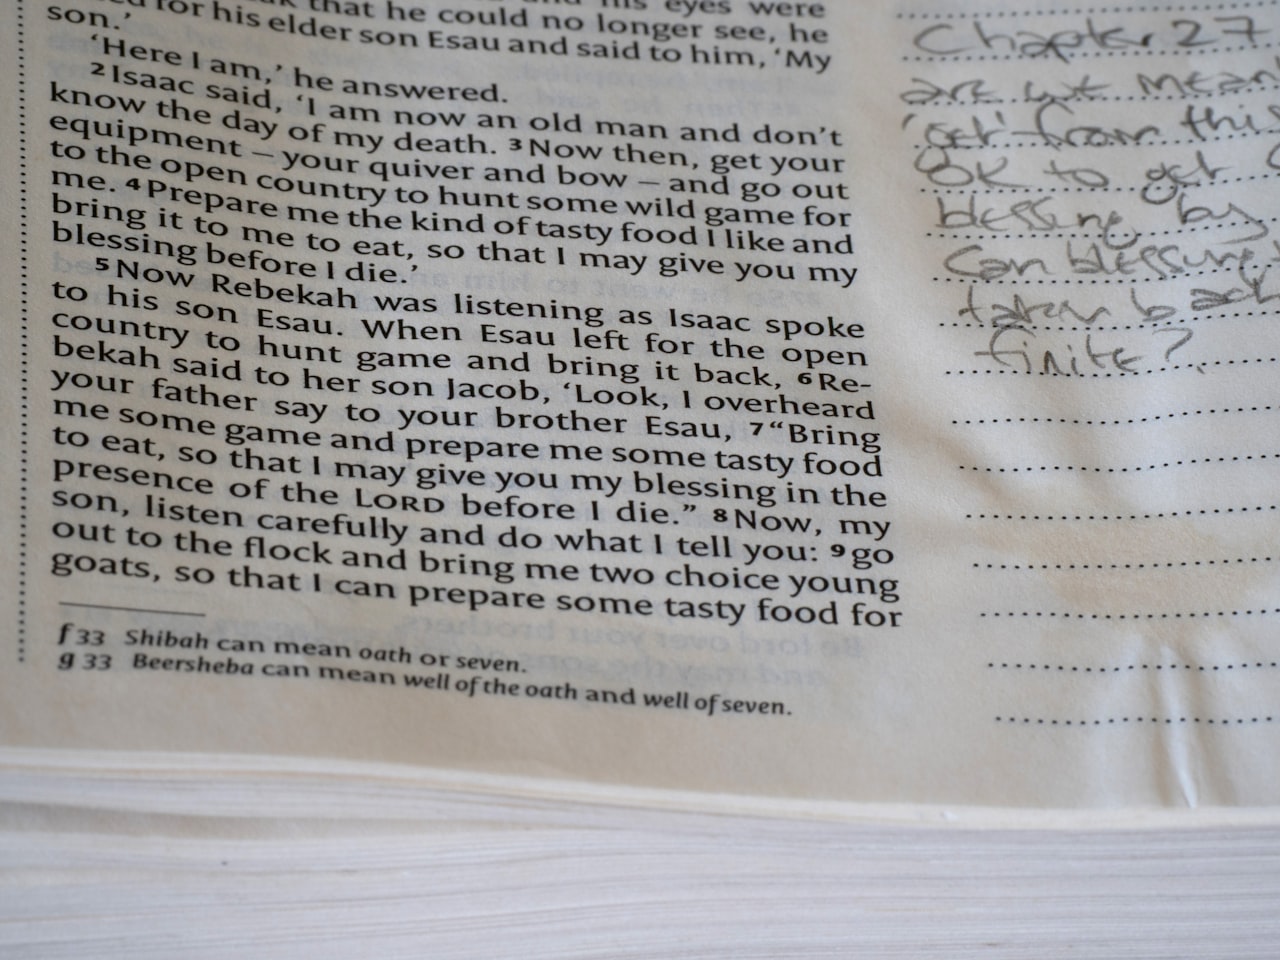 that he could no longer see, he
for his elder son Esau and said to him, ‘My
son.’
‘Here I am,’ he answered.
2 Isaac said, ‘I am now an old man and don’t
know the day of my death. 3 Now then, get your
equipment – your quiver and bow – and go out
to the open country to hunt some wild game for
me. 4 Prepare me the kind of tasty food I like and
bring it to me to eat, so that I may give you my
blessing before I die.’
5 Now Rebekah was listening as Isaac spoke
to his son Esau. When Esau left for the open
country to hunt game and bring it back, 6 Re-
bekah said to her son Jacob, ‘Look, I overheard
your father say to your brother Esau, 7 “Bring
me some game and prepare me some tasty food
to eat, so that I may give you my blessing in the
presence of the LORD before I die.” 8 Now, my
son, listen carefully and do what I tell you: 9 go
out to the flock and bring me two choice young
goats, so that I can prepare some tasty food for
f 33 Shibah can mean oath or seven.
g 33 Beersheba can mean well of the oath and well of seven.
Chapter 27
are we mean
‘get’ from this
OK to get
blessing by
Can blessing
taken back
finite?